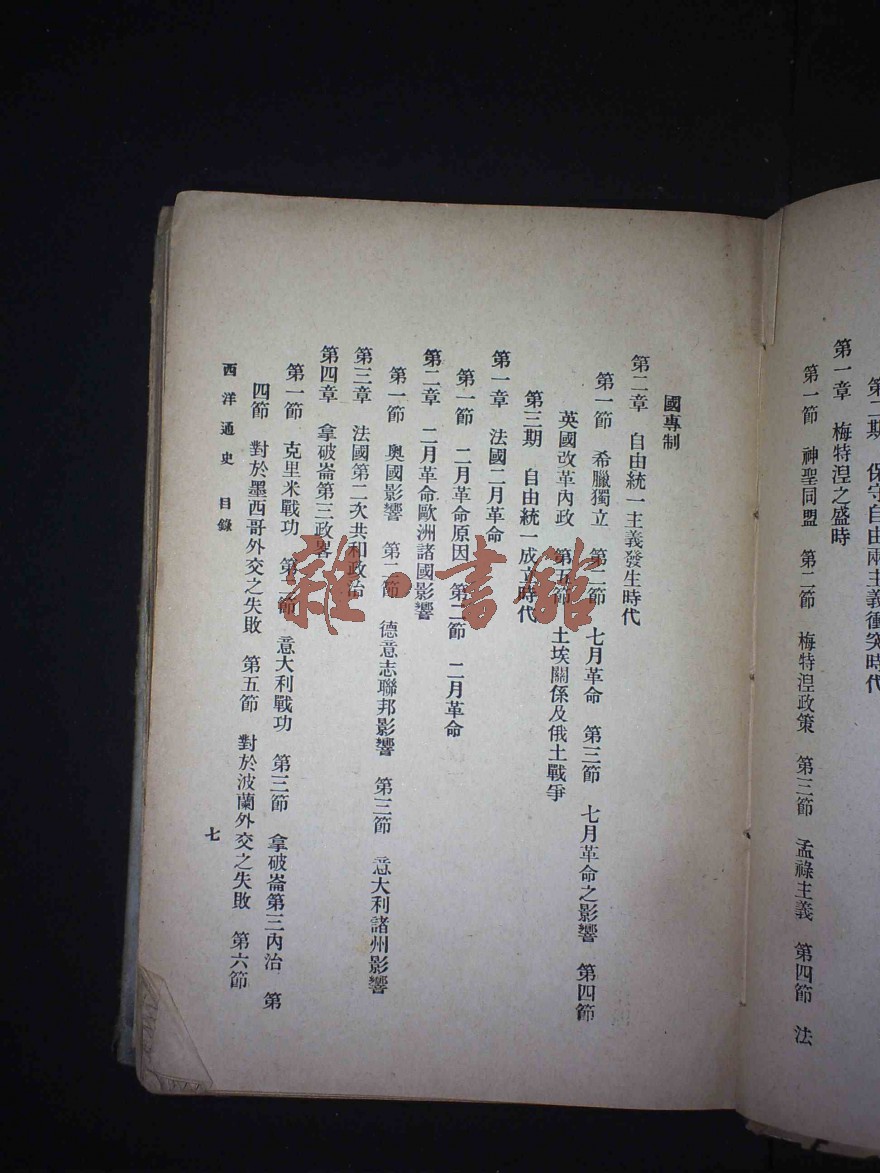 第二期　保守自由兩主義衝突時代
第一章　梅特湼之盛時
第一節　神聖同盟　第二節　梅特湼政策　第三節　孟祿主義　第四節　法
國專制
第二章　自由統一主義發生時代
第一節　希臘獨立　第二節　七月革命　第三節　七月革命之影響　第四節
英國改革內政　第五節　土埃關係及俄土戰爭
第三期　自由統一成立時代
第一章　法國二月革命
第一節　二月革命原因　第二節　二月革命
第二章　二月革命歐洲諸國影響
第一節　奧國影響　第二節　德意志聯邦影響　第三節　意大利諸州影響
第三章　法國第二次共和政治
第四章　拿破崙第三政畧
第一節　克里米戰功　第二節　意大利戰功　第三節　拿破崙第三內治　第
四節　對於墨西哥外交之失敗　第五節　對於波蘭外交之失敗　第六節
西洋通史　目錄
七
雜·書館